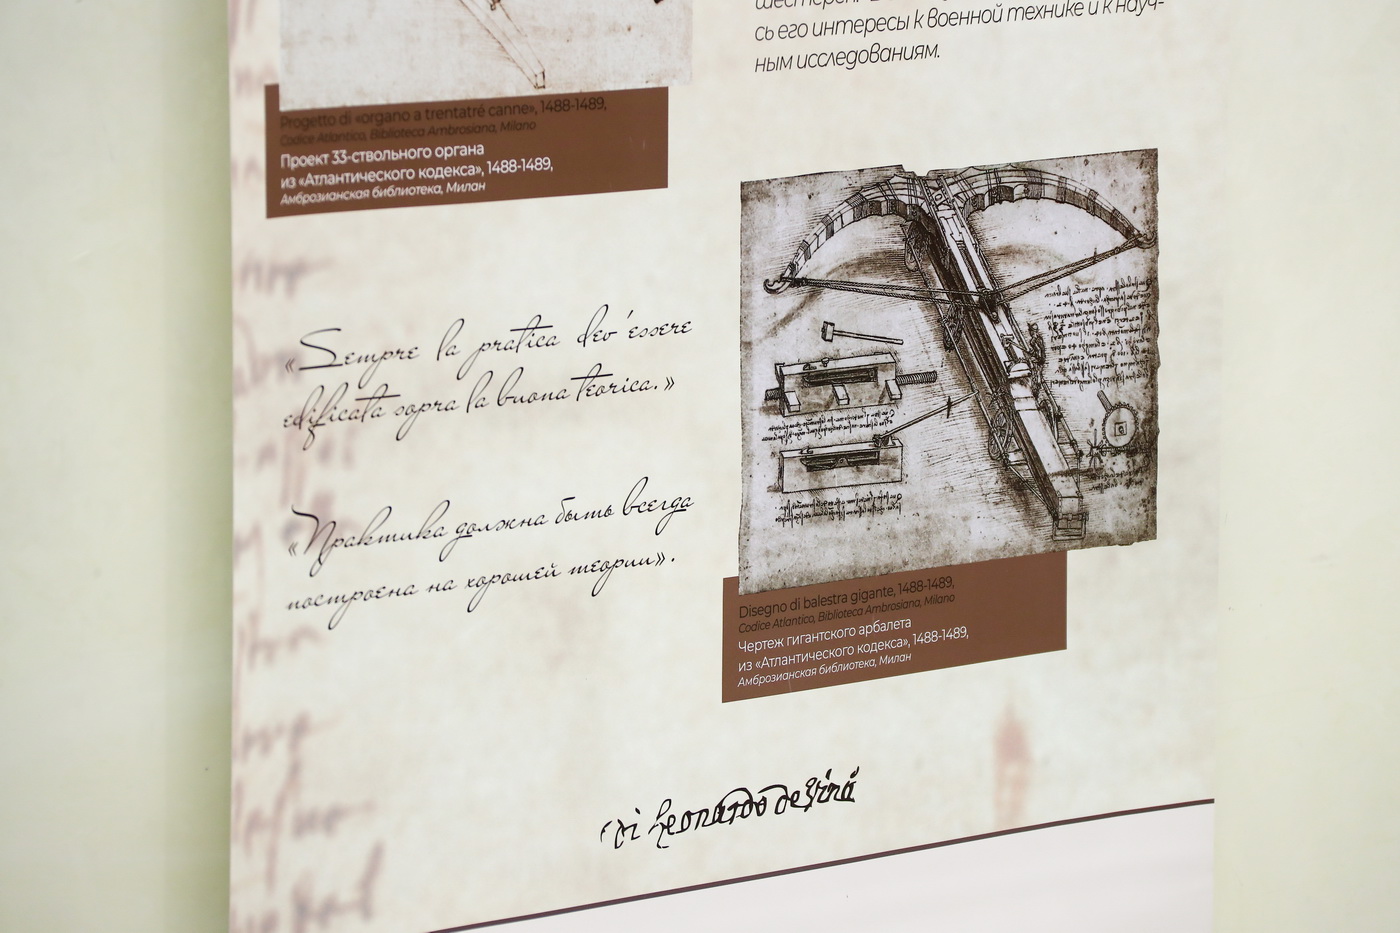 сь его интересы к военной технике и к науч-
ным исследованиям.
Progetto di «organo a trentatré canne», 1488-1489,
Codice Atlantico, Biblioteca Ambrosiana, Milano
Проект 33-ствольного органа
из «Атлантического кодекса», 1488-1489,
Амброзианская библиотека, Милан
«Sempre la pratica dev'essere
edificata sopra la buona teorica.»
«Практика должна быть всегда
построена на хорошей теории».
Disegno di balestra gigante, 1488-1489,
Codice Atlantico, Biblioteca Ambrosiana, Milano
Чертеж гигантского арбалета
из «Атлантического кодекса», 1488-1489,
Амброзианская библиотека, Милан
Leonardo de Vinci